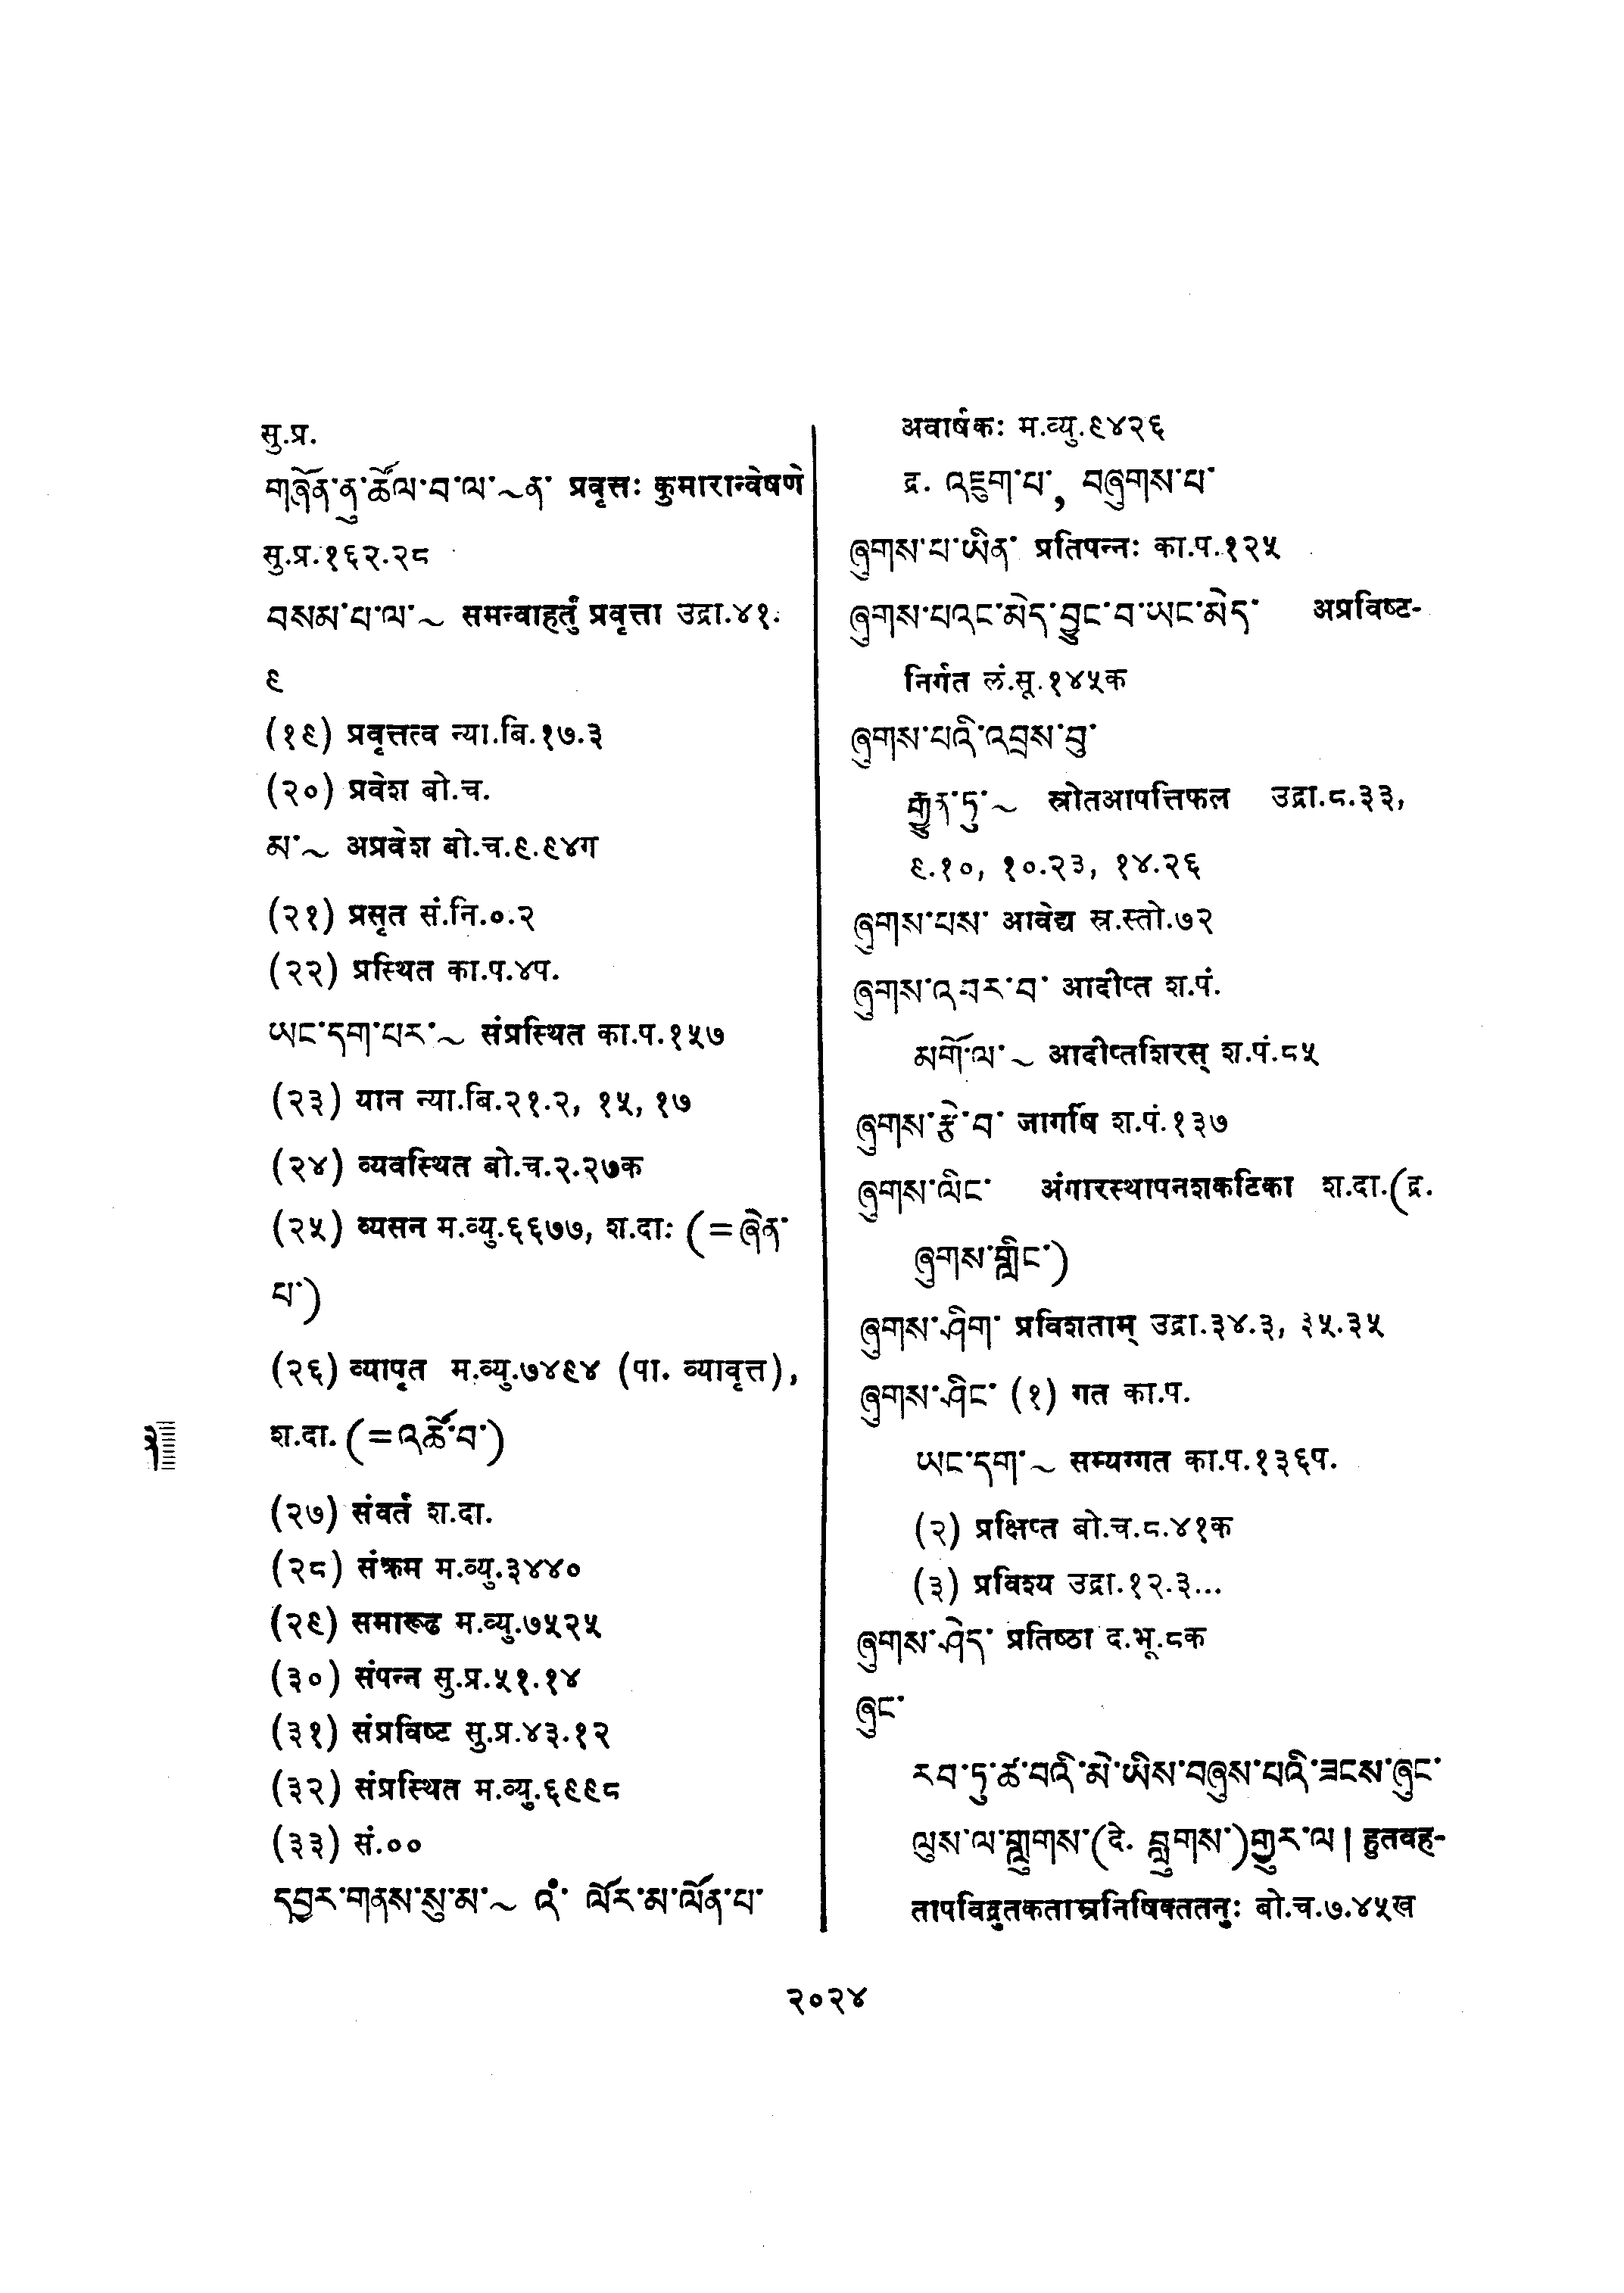 सु.प्र.
གཞོན་ནུ་ཚོལ་བ་ལ་~ན་ प्रवृत्तः कुमारान्वेषणे
सु.प्र.१६२.२८
བསམ་པ་ལ་~ समन्वाहर्तुं प्रवृत्ता उद्रा.४१.
९
(१९) प्रवृत्तत्व न्या.बि.१७.३
(२०) प्रवेश बो.च.
མ་~ अप्रवेश बो.च.९.९४ग
(२१) प्रसृत सं.नि.०.२
(२२) प्रस्थित का.प.४प.
ཡང་དག་པར་~ संप्रस्थित का.प.१५७
(२३) यान न्या.बि.२१.२, १५, १७
(२४) व्यवस्थित बो.च.२.२७क
(२५) व्यसन म.व्यु.६६७७, श.दा: (=ཞེན་
པ་)
(२६) व्यापृत म.व्यु.७४९४ (पा. व्यावृत्त),
श.दा. (=འཚོ་བ་)
(२७) संवर्त श.दा.
(२८) संक्रम म.व्यु.३४४०
(२९) समारूढ म.व्यु.७५२५
(३०) संपन्न सु.प्र.५१.१४
(३१) संप्रविष्ट सु.प्र.४३.१२
(३२) संप्रस्थित म.व्यु.६९९८
(३३) सं.००
དབྱར་གནས་སུ་མ་~ འཾ་ ལོར་མ་ལོན་པ་
अवार्षकः म.व्यु.९४२६
द्र. འཇུག་པ་, བཞུགས་པ་
ཞུགས་པ་ཡིན་ प्रतिपन्नः का.प.१२५
ཞུགས་པའང་མེད་བྱུང་བ་ཡང་མེད་ अप्रविष्ट-
निर्गत लं.सू.१४५क
ཞུགས་པའི་འབྲས་བུ་
རྒྱུན་ཏུ་~ स्रोतआपत्तिफल उद्रा.८.३३,
९.१०, १०.२३, १४.२६
ཞུགས་པས་ आवेद्य स्र.स्तो.७२
ཞུགས་འབར་བ་ आदीप्त श.पं.
མགོ་ལ་~ आदीप्तशिरस् श.पं.८५
ཞུགས་རྩེ་བ་ जार्गाष श.पं.१३७
ཞུགས་ལིང་ अंगारस्थापनशकटिका श.दा.(द्र.
ཞུགས་གླིང་)
ཞུགས་ཤིག་ प्रविशताम् उद्रा.३४.३, ३५.३५
ཞུགས་ཤིང་ (१) गत का.प.
ཡང་དག་~ सम्यग्गत का.प.१३६प.
(२) प्रक्षिप्त बो.च.८.४१क
(३) प्रविश्य उद्रा.१२.३...
ཞུགས་ཤེད་ प्रतिष्ठा द.भू.८क
ཞུང་
རབ་ཏུ་ཚ་བའི་མེ་ཡིས་བཞུས་པའི་ཟངས་ཞུང་
ལུས་ལ་གླུགས་(दे. བླུགས་)གྱུར་ལ། हुतवह-
तापविद्रुतकताम्रनिषिक्ततनुः बो.च.७.४५ख
२०२४